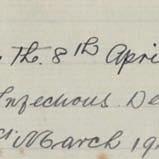 Th. 8th Apri
Infectious De
March 19